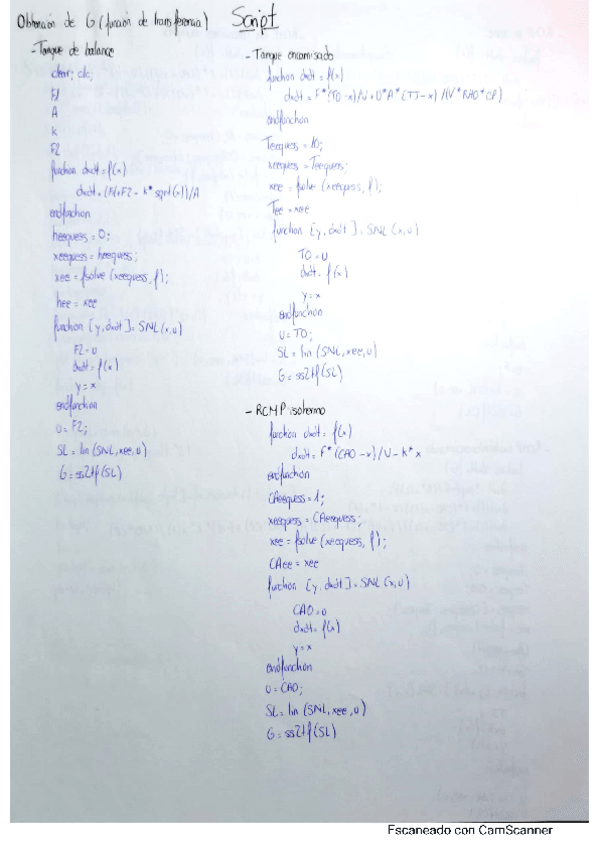 Obtención de G (función de transferencia) Script
- Tanque de balance
clear; clc;
F1
A
k
F2
function dxdt = f(x)
dxdt = (F1+F2 - k* sqrt(x))/A
endfunction
heeguess = 0;
xeeguess = heeguess;
xee = fsolve (xeeguess, f);
hee = xee
function [y, dxdt] = SNL (x,u)
F2 = u
dxdt = f(x)
y = x
endfunction
u = F2;
SL = lin (SNL, xee, u)
G = ss2tf(SL)
- Tanque encamisado
function dxdt = f(x)
dxdt = F*(T0 -x)/V + U*A*(TJ-x) /(V*RHO*CP)
endfunction
Teeguess = 10;
xeeguess = Teeguess;
xee = fsolve (xeeguess, f);
Tee = xee
function [y, dxdt] = SNL (x,u)
T0 = u
dxdt = f(x)
y = x
endfunction
u = T0;
SL = lin (SNL, xee, u)
G = ss2tf(SL)
- RCMP isotermo
function dxdt = f(x)
dxdt = F* (CA0 -x)/V - k* x
endfunction
CAeeguess = 1;
xeeguess = CAeeguess;
xee = fsolve (xeeguess, f);
CAee = xee
function [y, dxdt] = SNL (x,u)
CA0 = u
dxdt = f(x)
y = x
endfunction
u = CA0;
SL = lin (SNL, xee, u)
G = ss2tf(SL)
Escaneado con CamScanner